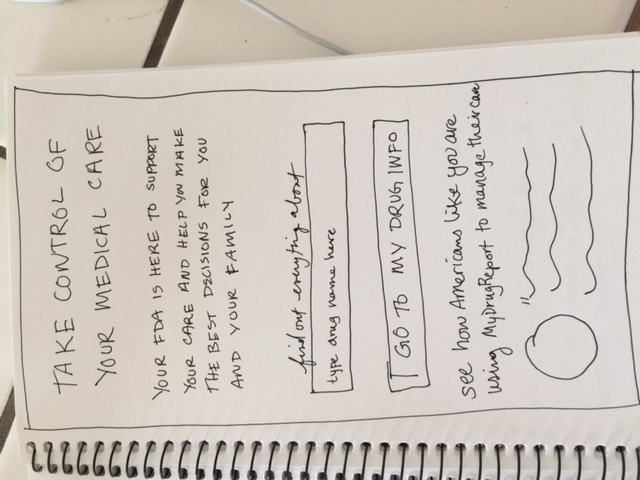 TAKE CONTROL OF
YOUR MEDICAL CARE
YOUR FDA IS HERE TO SUPPORT
YOUR CARE AND HELP YOU MAKE
THE BEST DECISIONS FOR YOU
AND YOUR FAMILY
find out everything about
type drug name here
GO TO MY DRUG INFO
see how Americans like you are
using MyDrugReport to manage their care
"